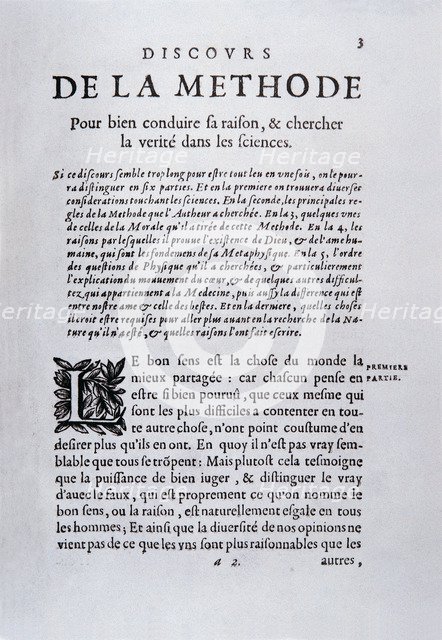 3
DISCOVRS
DE LA METHODE
Pour bien conduire ſa raiſon, & chercher
la verité dans les ſciences.
Si ce diſcours ſemble trop long pour eſtre tout leu en vne fois, on le pour-
ra diſtinguer en ſix parties. Et en la premiere on trouuera diuerſes
conſiderations touchant les ſciences. En la ſeconde, les principales re-
gles de la Methode que l'Autheur a cherchée. En la 3, quelques vnes
de celles de la Morale qu'il a tirée de cete Methode. En la 4, les
raiſons par leſquelles il prouue l'exiſtence de Dieu, & de l'ame hu-
maine, qui ſont les fondemens de ſa Metaphyſique. En la 5, l'ordre
des queſtions de Phyſique qu'il a cherchées, & particulierement
l'explication du mouuement du cœur, & de quelques autres difficul-
tez qui appartienent a la Medecine, puis auſſy la difference qui eſt
entre noſtre ame & celle des beſtes. Et en la derniere, quelles choſes
il croit eſtre requiſes pour aller plus auant en la recherche de la Na-
ture qu'il n'a eſté, & quelles raiſons l'ont fait eſcrire.
LE bon ſens eſt la choſe du monde la
PREMIERE
PARTIE.
mieux partagée: car chaſcun penſe en
eſtre ſi bien pouruû, que ceux meſme qui
ſont les plus difficiles a contenter en tou-
te autre choſe, n'ont point couſtume d'en
deſirer plus qu'ils en ont. En quoy il n'eſt pas vray ſem-
blable que tous ſe trõpent: Mais plutoſt cela teſmoigne
que la puiſſance de bien iuger, & diſtinguer le vray
d'auec le faux, qui eſt proprement ce qu'on nomme le
bon ſens, ou la raiſon, eſt naturellement eſgale en tous
les hommes; Et ainſi que la diuerſité de nos opinions ne
vient pas de ce que les vns ſont plus raiſonnables que les
a 2.
autres,
Heritage
Heritage
Heritage
Heritage
Heritage
Heritage